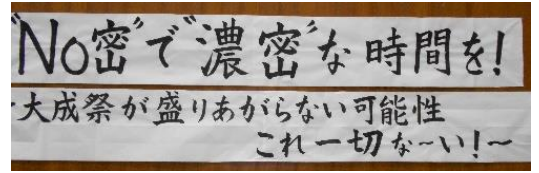 "No密"で"濃密"な時間を!
~大成祭が盛りあがらない可能性
これ一切な~い!~